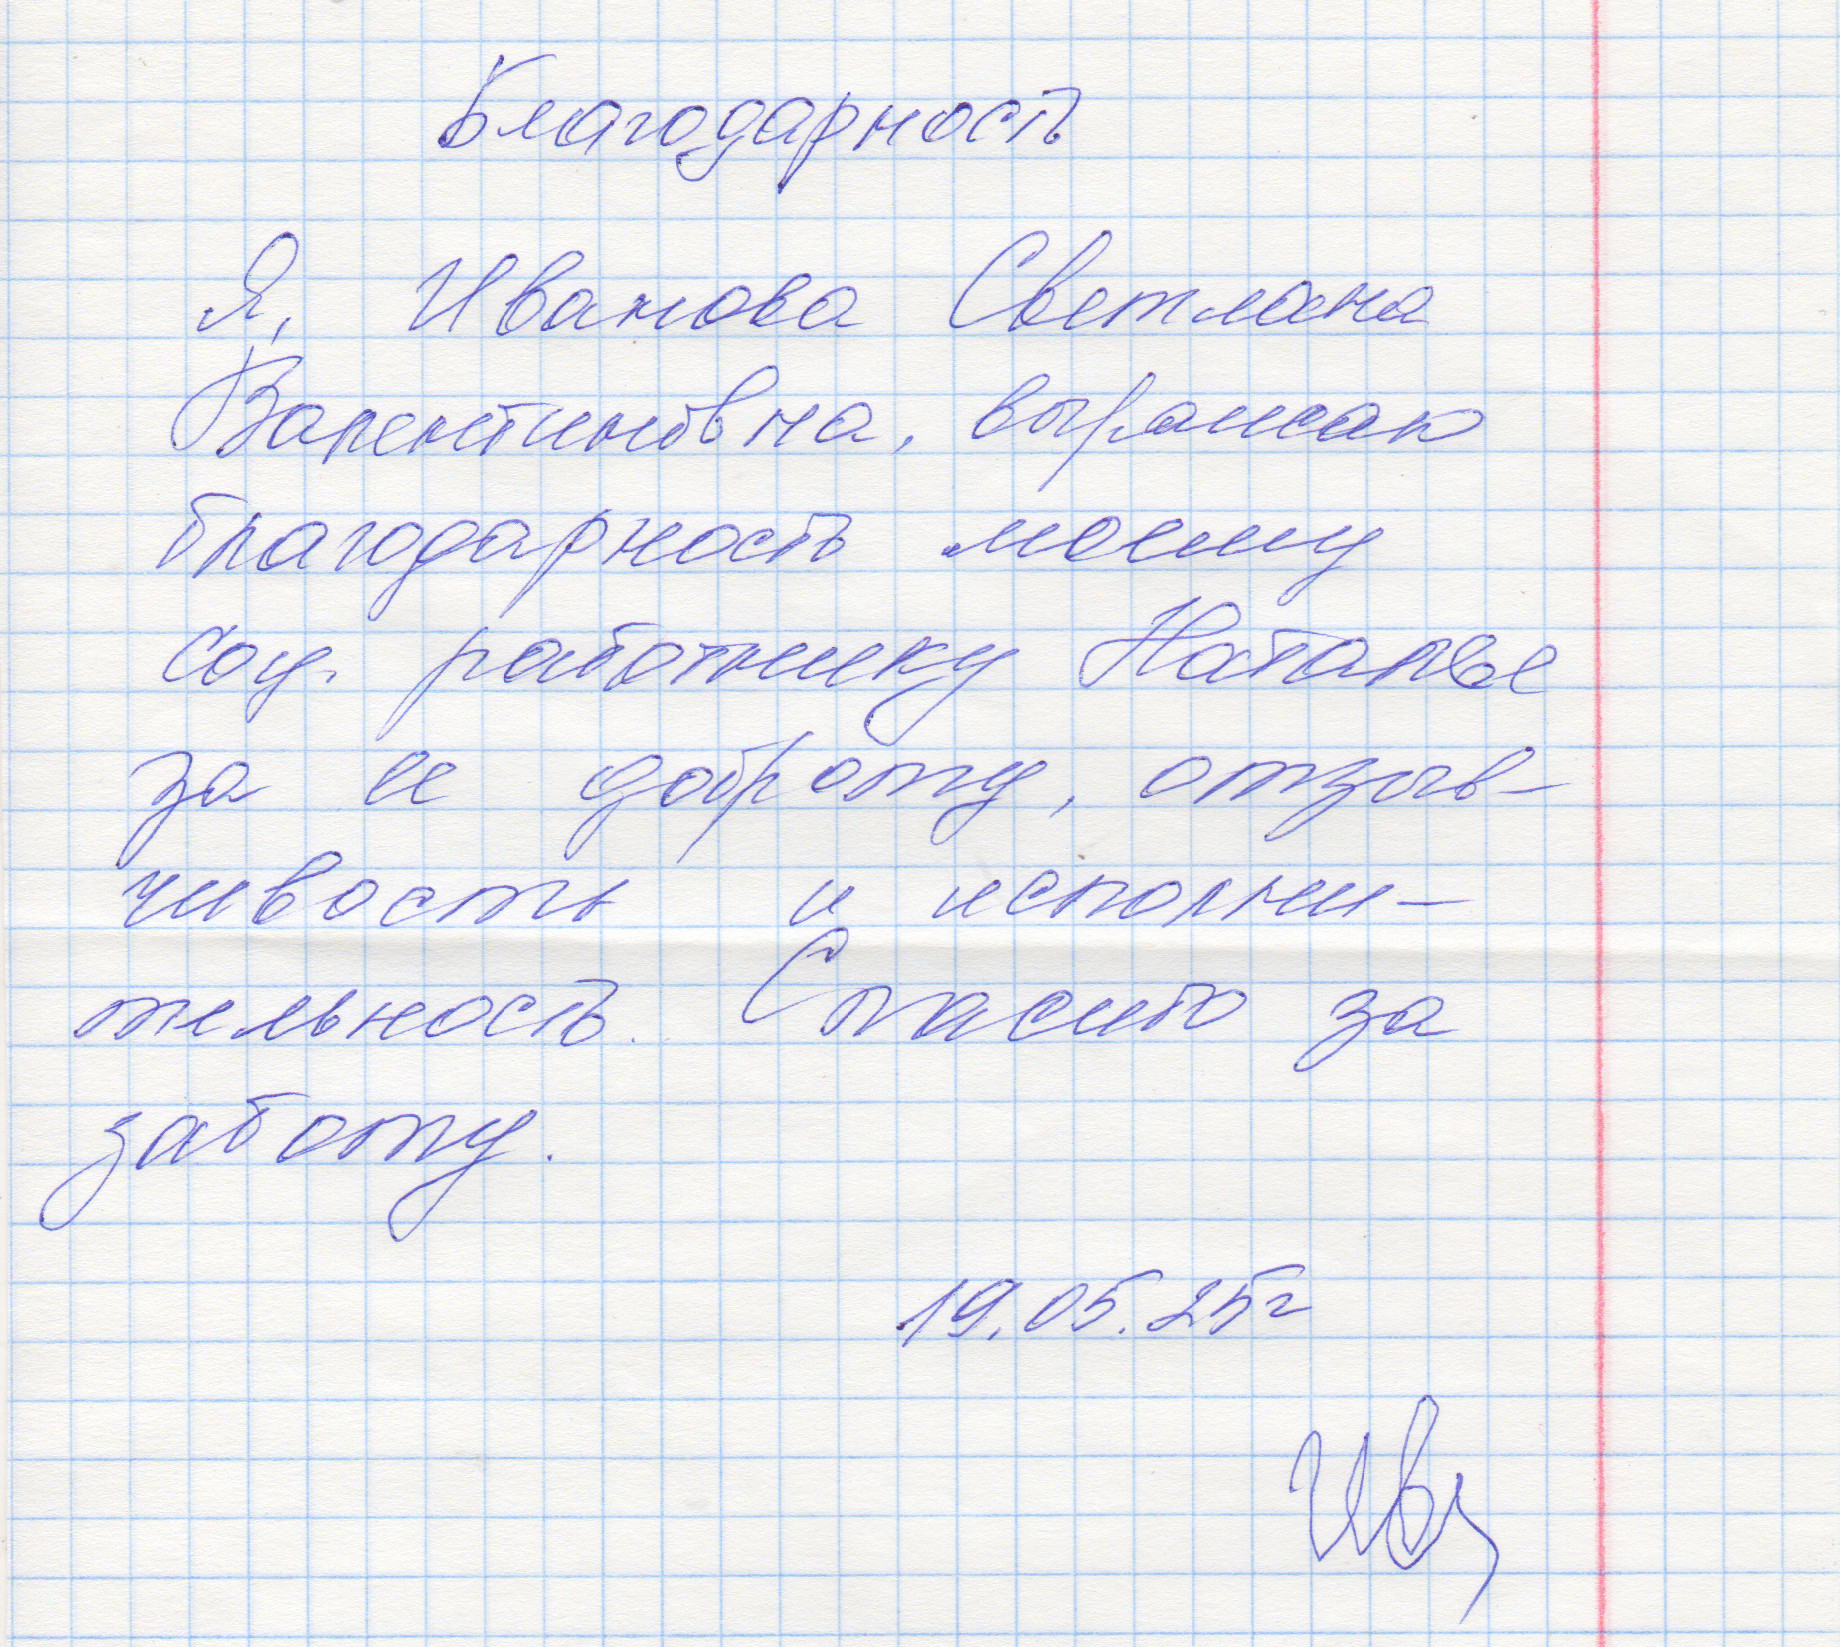 Благодарность
Я, Иванова Светлана
Валентиновна, выражаю
благодарность моему
соц. работнику Наталье
за ее доброту, отзыв-
чивость и исполни-
тельность. Спасибо за
заботу.
19.05.25г
Ив